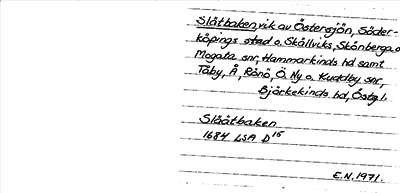 Slätbaken, vik av Östersjön, Söder-
köpings stad o. Skällviks, Skönberga o
Mogata snr, Hammarkinds hd samt
Tåby, Å, Rönö, Ö. Ny o. Kuddby snr,
Björkekinds hd, Östgl.
Slååtbaken
1684 LSA D15
E.N. 1971.